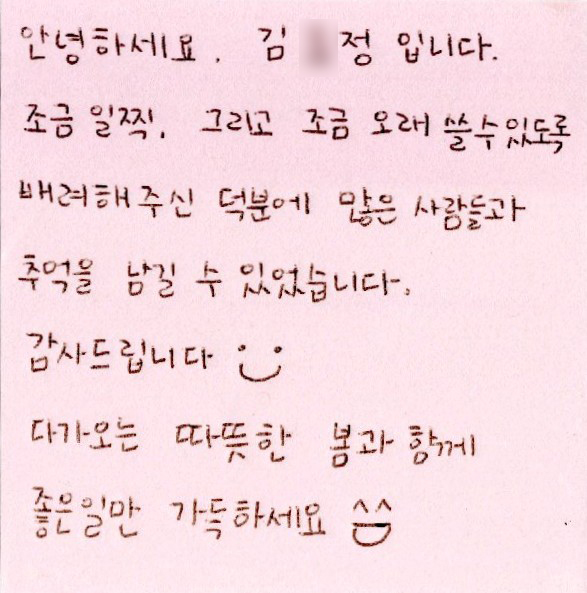 안녕하세요. 김 정 입니다.
조금 일찍, 그리고 조금 오래 쓸 수 있도록
배려해 주신 덕분에 많은 사람들과
추억을 남길 수 있었습니다.
감사드립니다
다가오는 따뜻한 봄과 함께
좋은일만 가득하세요